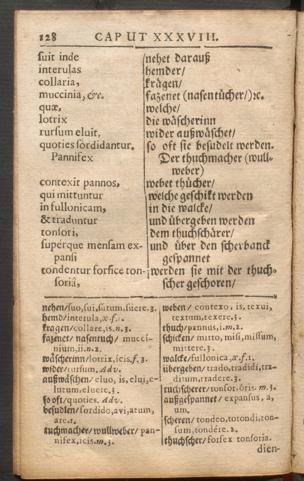 128 CAPUT XXXVIII.
suit inde nehet darauß
interulas hemder/
collaria, krägen/
muccinia, &c. fazenet (nasentücher/)ꝛc.
quæ, welche/
lotrix die wäscherinn
rursum eluit, wider außwäschet/
quoties sordidantur. so oft sie besudelt werden.
Pannifex Der thuchmacher (wull-
weber)
contexit pannos, webet thücher/
qui mittuntur welche geschikt werden
in fullonicam, in die walcke/
& traduntur und übergeben werden
tonsori, dem thuchschärer/
superque mensam ex- und über den scherbanck
pansi gespannet
tondentur forfice ton- werden sie mit der thuch-
soriâ, scher geschoren/
nehen/suo,sui,sutum,suere.3.
hemd/interula,æ.f.1.
kragen/collare,is.n.3.
fazenet/nasentuch/mucci-
nium,ii.n.2.
wäscherinn/lotrix,icis.f.3.
wider/rursum.Adv.
außwäschen/eluo,is,elui,e-
lutum,eluere.3.
so oft/quoties.Adv.
besudlen/sordido,avi,atum,
are.1.
tuchmacher/wullweber/pan-
nifex,icis.m.3.
weben/contexo,is,texui,
textum,texere.3.
thuch/pannus,i.m.2.
schicken/mitto,misi,missum,
mittere.3.
walcke/fullonica,æ.f.1.
übergeben/trado,tradidi,tra-
ditum,tradere.3.
tuchscherer/tonsor,oris.m.3.
außgespannet/expansus,a,
um.
scheren/tondeo,totondi,ton-
sum,tondére.2.
thuchscher/forfex tonsoria.
dien-